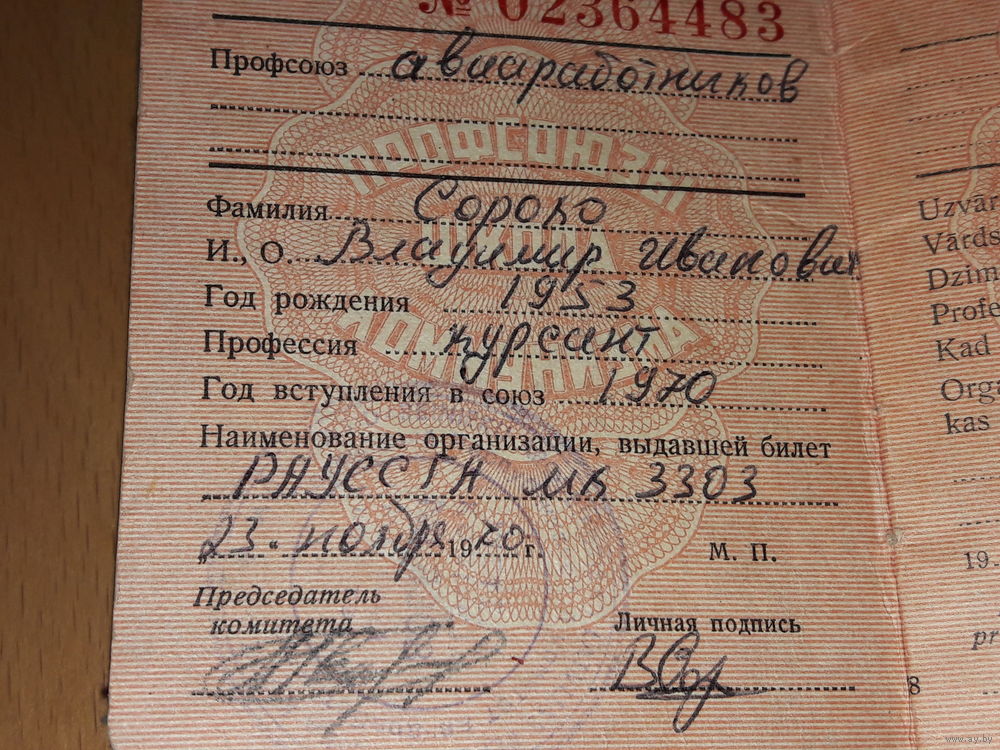 № 02364483
Профсоюз авиаработников
ПРОФСОЮЗЫ
ШКОЛА
КОММУНИЗМА
Фамилия Сороко
И., О. Владимир Иванович
Год рождения 1953
Профессия курсант
Год вступления в союз 1970
Наименование организации, выдавшей билет
РАУССГА мк 3303
„23“ ноября 1970 г.
М. П.
Председатель
комитета
Личная подпись
8
Uzvār
Vārds
Dzim
Profe
Kad
Orga
kas
19
pr
www.ay.by